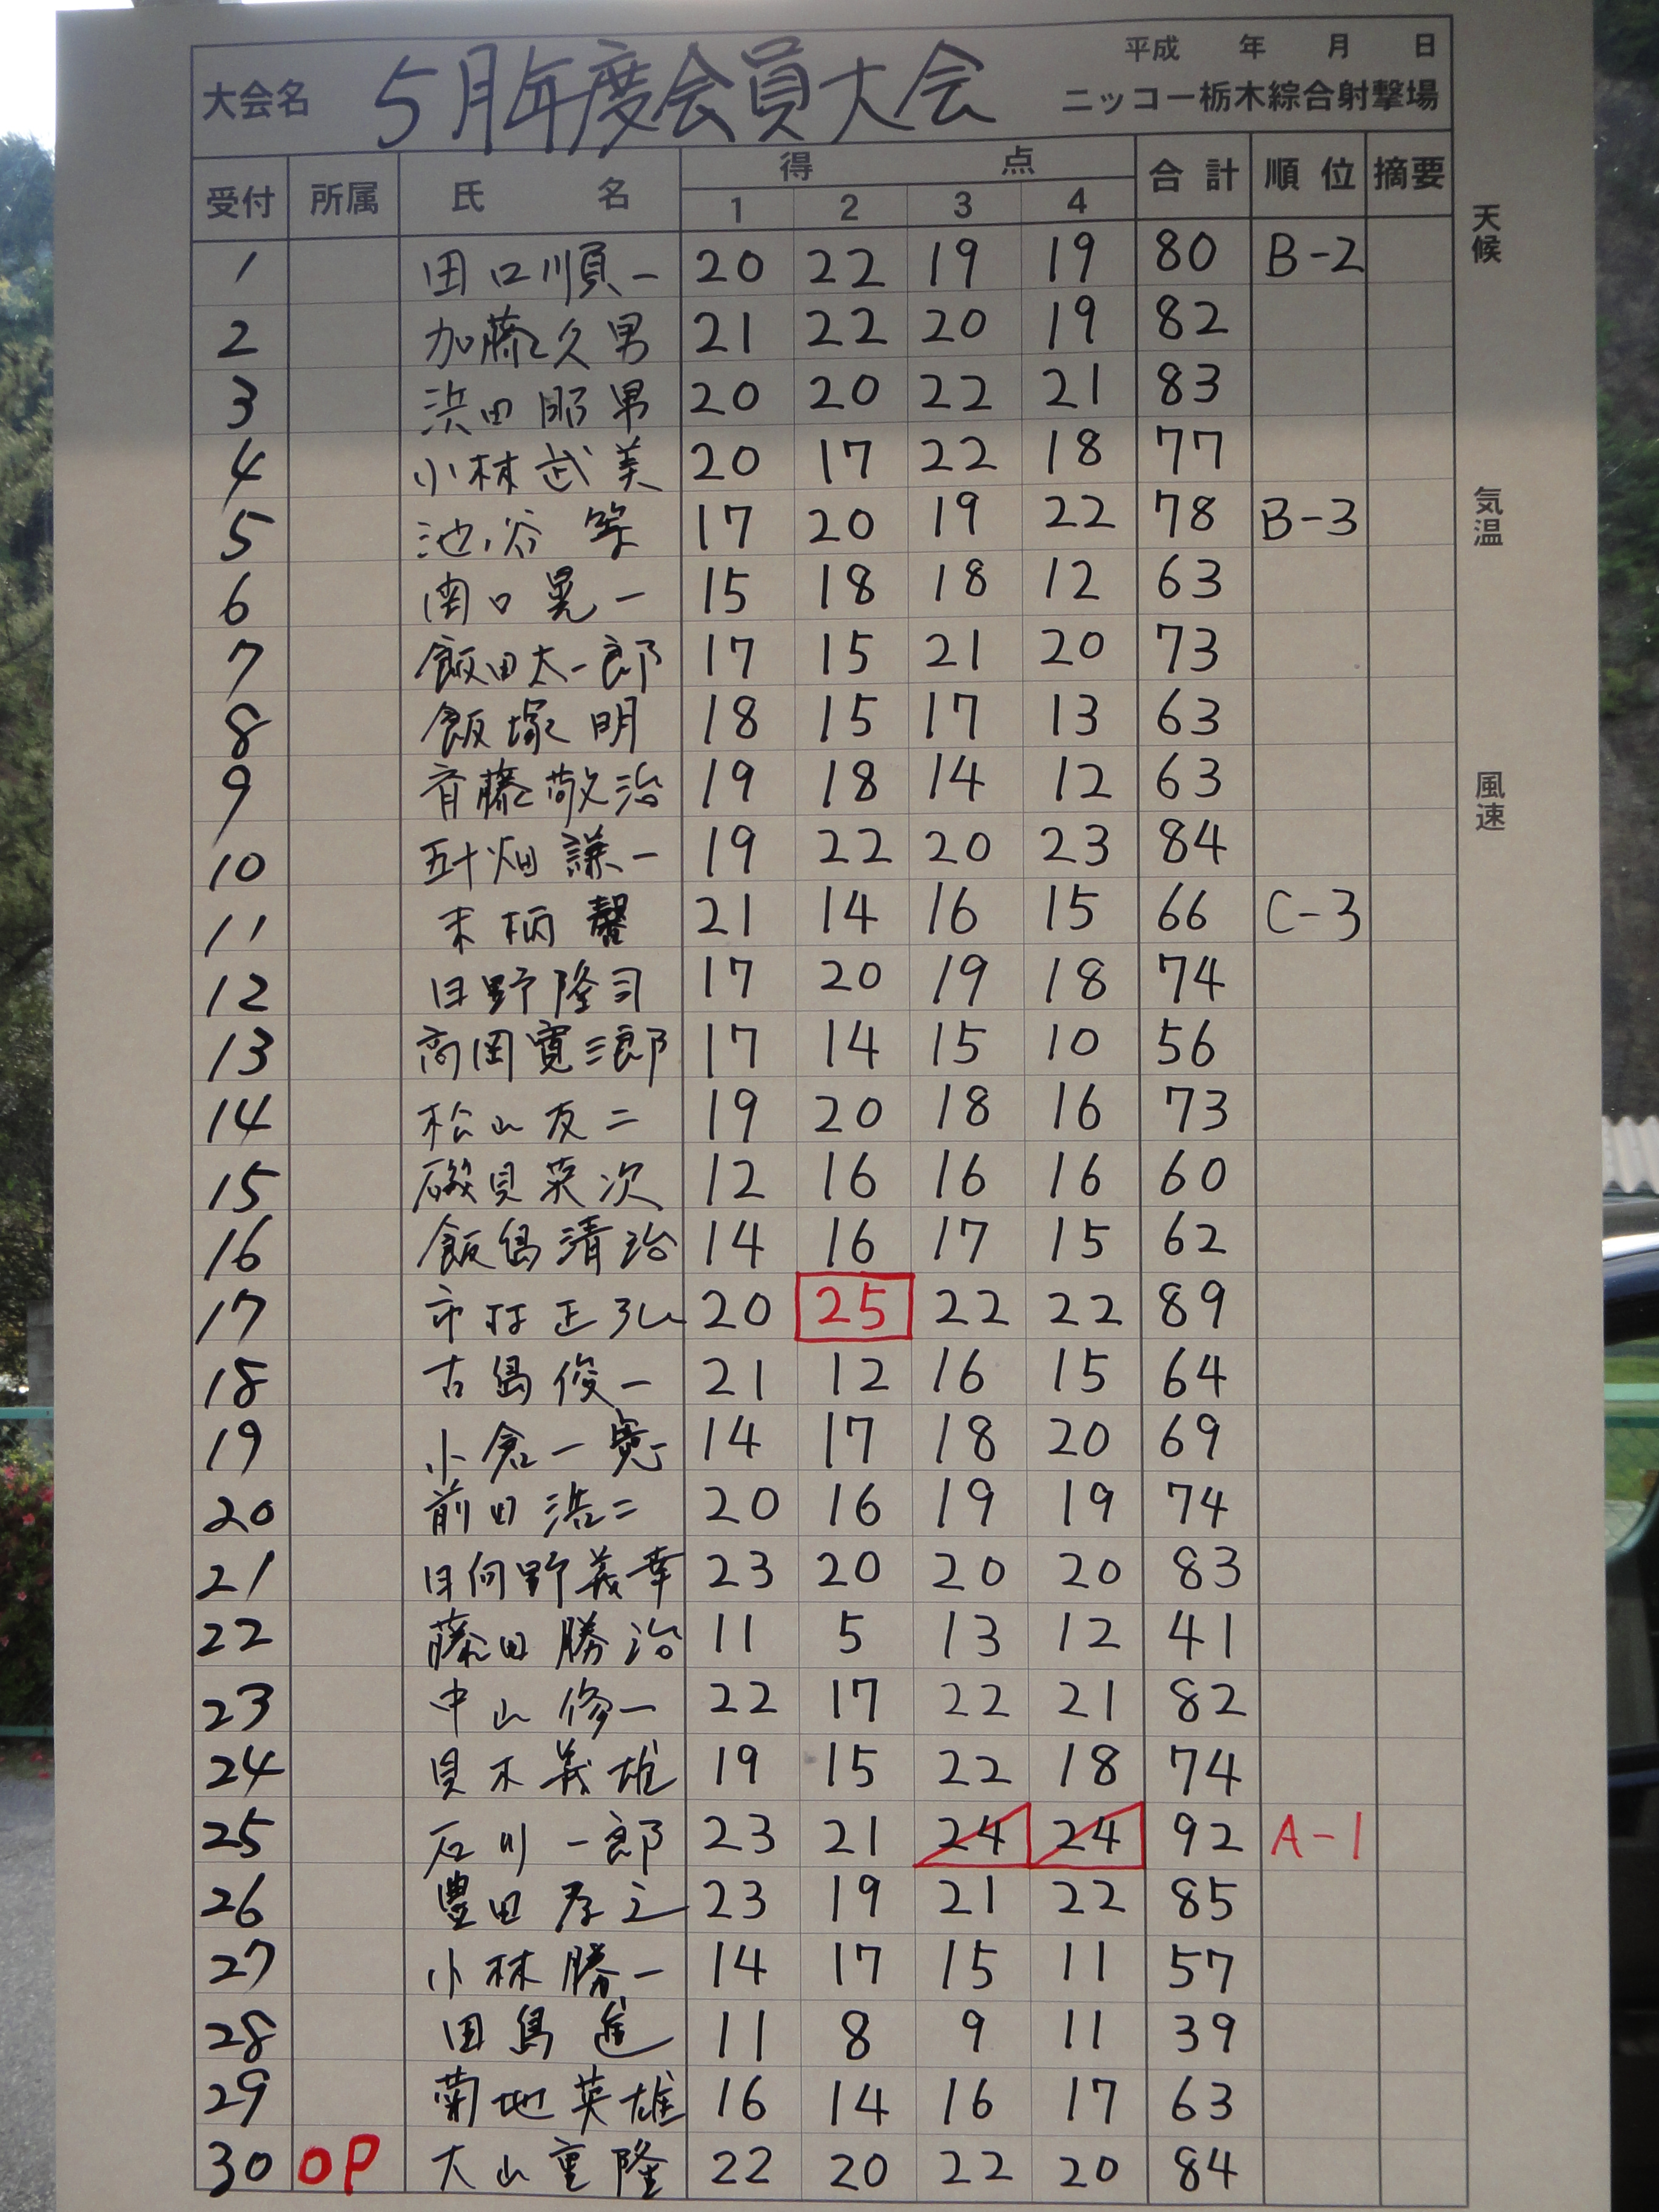 平成 年 月 日
大会名 5月年度会員大会 ニッコー栃木綜合射撃場
受付 所属 氏名 得点 合計 順位 摘要
1 2 3 4
1 田口順一 20 22 19 19 80 B-2
2 加藤久男 21 22 20 19 82
3 浜田昭男 20 20 22 21 83
4 小林武美 20 17 22 18 77
5 池谷 17 20 19 22 78 B-3
6 関口晃一 15 18 18 12 63
7 飯田太一郎 17 15 21 20 73
8 飯塚明 18 15 17 13 63
9 斉藤敬治 19 18 14 12 63
10 五十畑謙一 19 22 20 23 84
11 末柄馨 21 14 16 15 66 C-3
12 日野隆司 17 20 19 18 74
13 高岡寛三郎 17 14 15 10 56
14 松山友二 19 20 18 16 73
15 磯貝栄次 12 16 16 16 60
16 飯島清治 14 16 17 15 62
17 市村正弘 20 25 22 22 89
18 古島俊一 21 12 16 15 64
19 小倉一寛 14 17 18 20 69
20 前田浩二 20 16 19 19 74
21 日向野義幸 23 20 20 20 83
22 藤田勝治 11 5 13 12 41
23 中山修一 22 17 22 21 82
24 貝木義雄 19 15 22 18 74
25 石川一郎 23 21 24 24 92 A-1
26 豊田孝之 23 19 21 22 85
27 小林勝一 14 17 15 11 57
28 田島進 11 8 9 11 39
29 菊地英雄 16 14 16 17 63
30 OP 大山重隆 22 20 22 20 84
天候
気温
風速